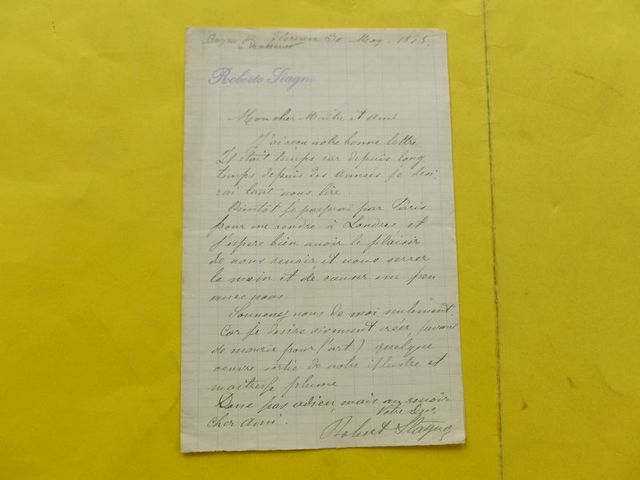 Florence 20 May. 1895.
Roberto Stagno
Mon cher Maître et ami
J'ai reçu votre bonne lettre
Il était temps car depuis long
temps depuis des années je dési
rai tant vous lire
Bientôt je passerai par Paris
pour me rendre à Londres et
j'espère bien avoir le plaisir
de vous revoir et vous serrer
la main et de causer un peu
avec vous
Souvenez vous de moi seulement
Car je désire vivement créer (avant
de mourir pour l'art) quelque
oeuvre sortie de votre illustre et
maitresse plume
Donc pas adieu, mais au revoir
cher ami.
Votre
Robert Stagno